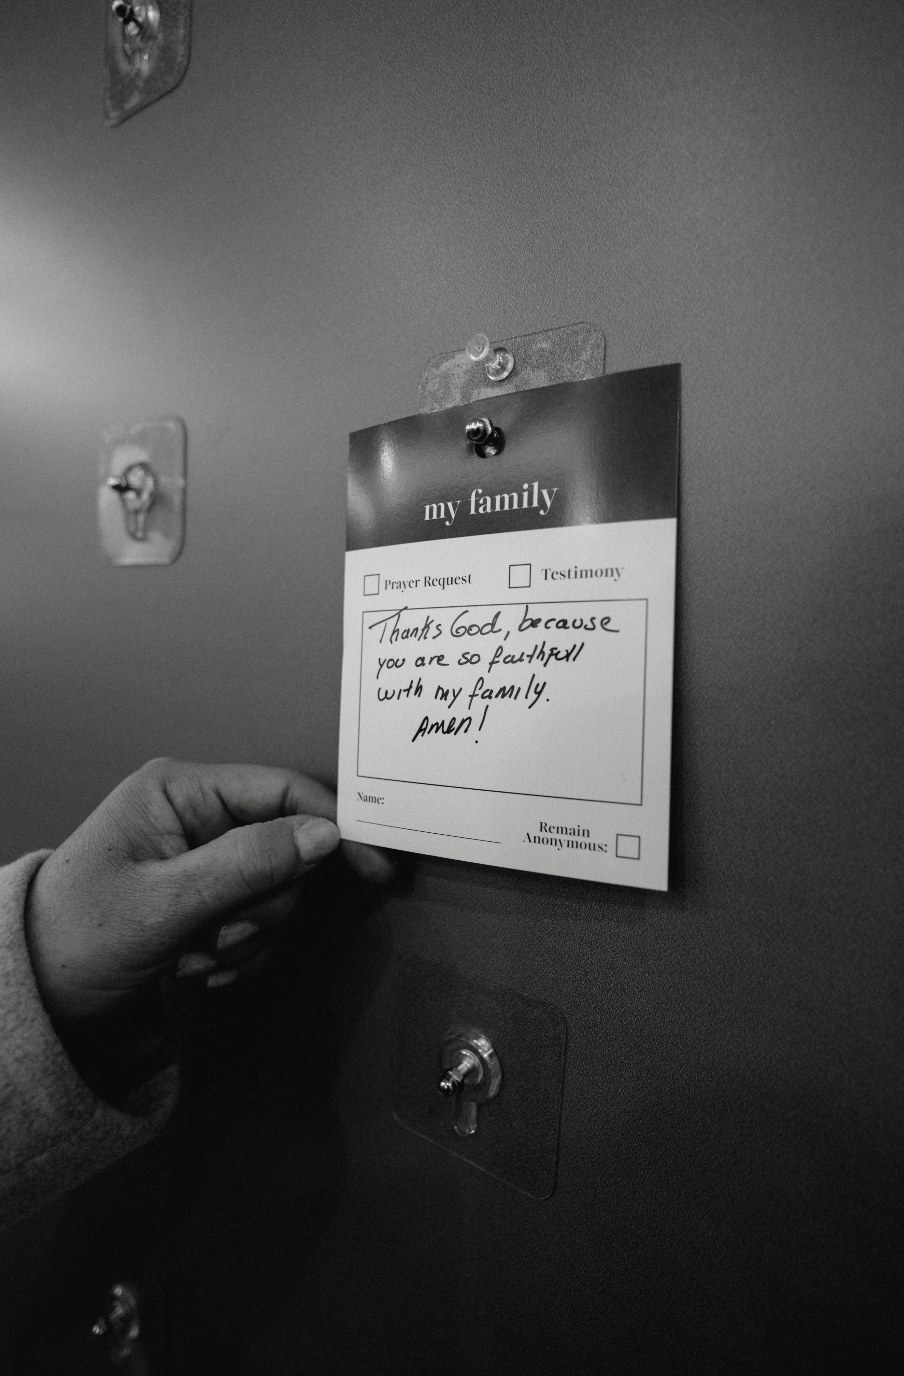 my family
Prayer Request Testimony
Thanks God, because
you are so faithfull
with my family.
Amen!
Name:
Remain
Anonymous: